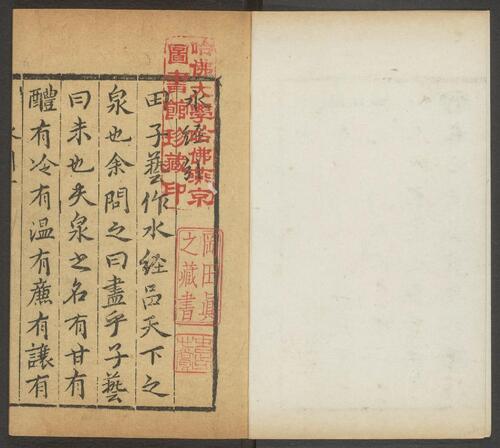 水経
田子藝作水経品天下之
泉也余問之曰盡乎子藝
曰未也夫泉之名有甘有
醴有冷有温有廉有讓有
哈佛大學哈佛燕京
圖書館珍藏印
岡田眞
之藏書